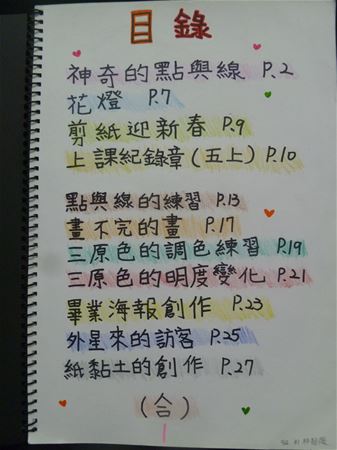 目錄
神奇的點與線 P.2
花燈 P.7
剪紙迎新春 P.9
上課紀錄章(五上) P.10
點與線的練習 P.13
畫不完的畫 P.17
三原色的調色練習 P.19
三原色的明度變化 P.21
畢業海報創作 P.23
外星來的訪客 P.25
紙黏土的創作 P.27
(合)